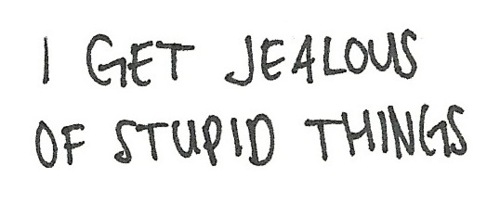 I GET JEALOUS
OF STUPID THINGS